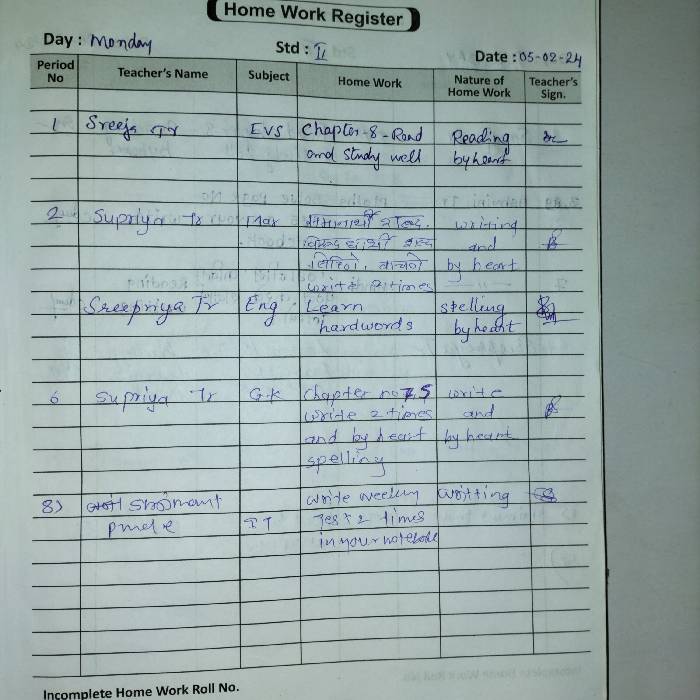 Home Work Register
Day : Monday Std : II Date : 05-02-24
Period No Teacher's Name Subject Home Work Nature of Home Work Teacher's Sign.
1 Sreeja Tr EVS Chapter-8-Read Reading
and Study well by heart
2 Supriya Tr Mar समानार्थी शब्द. writing
विरूद्धार्थी शब्द and
लिहिणे, वाचणे by heart
write 2 times
Sreepriya Tr Eng Learn spelling
hardwords by heart
6 Supriya Tr G.K Chapter no 5 write
write 2 times and
and by heart by heart
spelling
8) write weekly writting
IT Test 2 times
in your notebook
Incomplete Home Work Roll No.